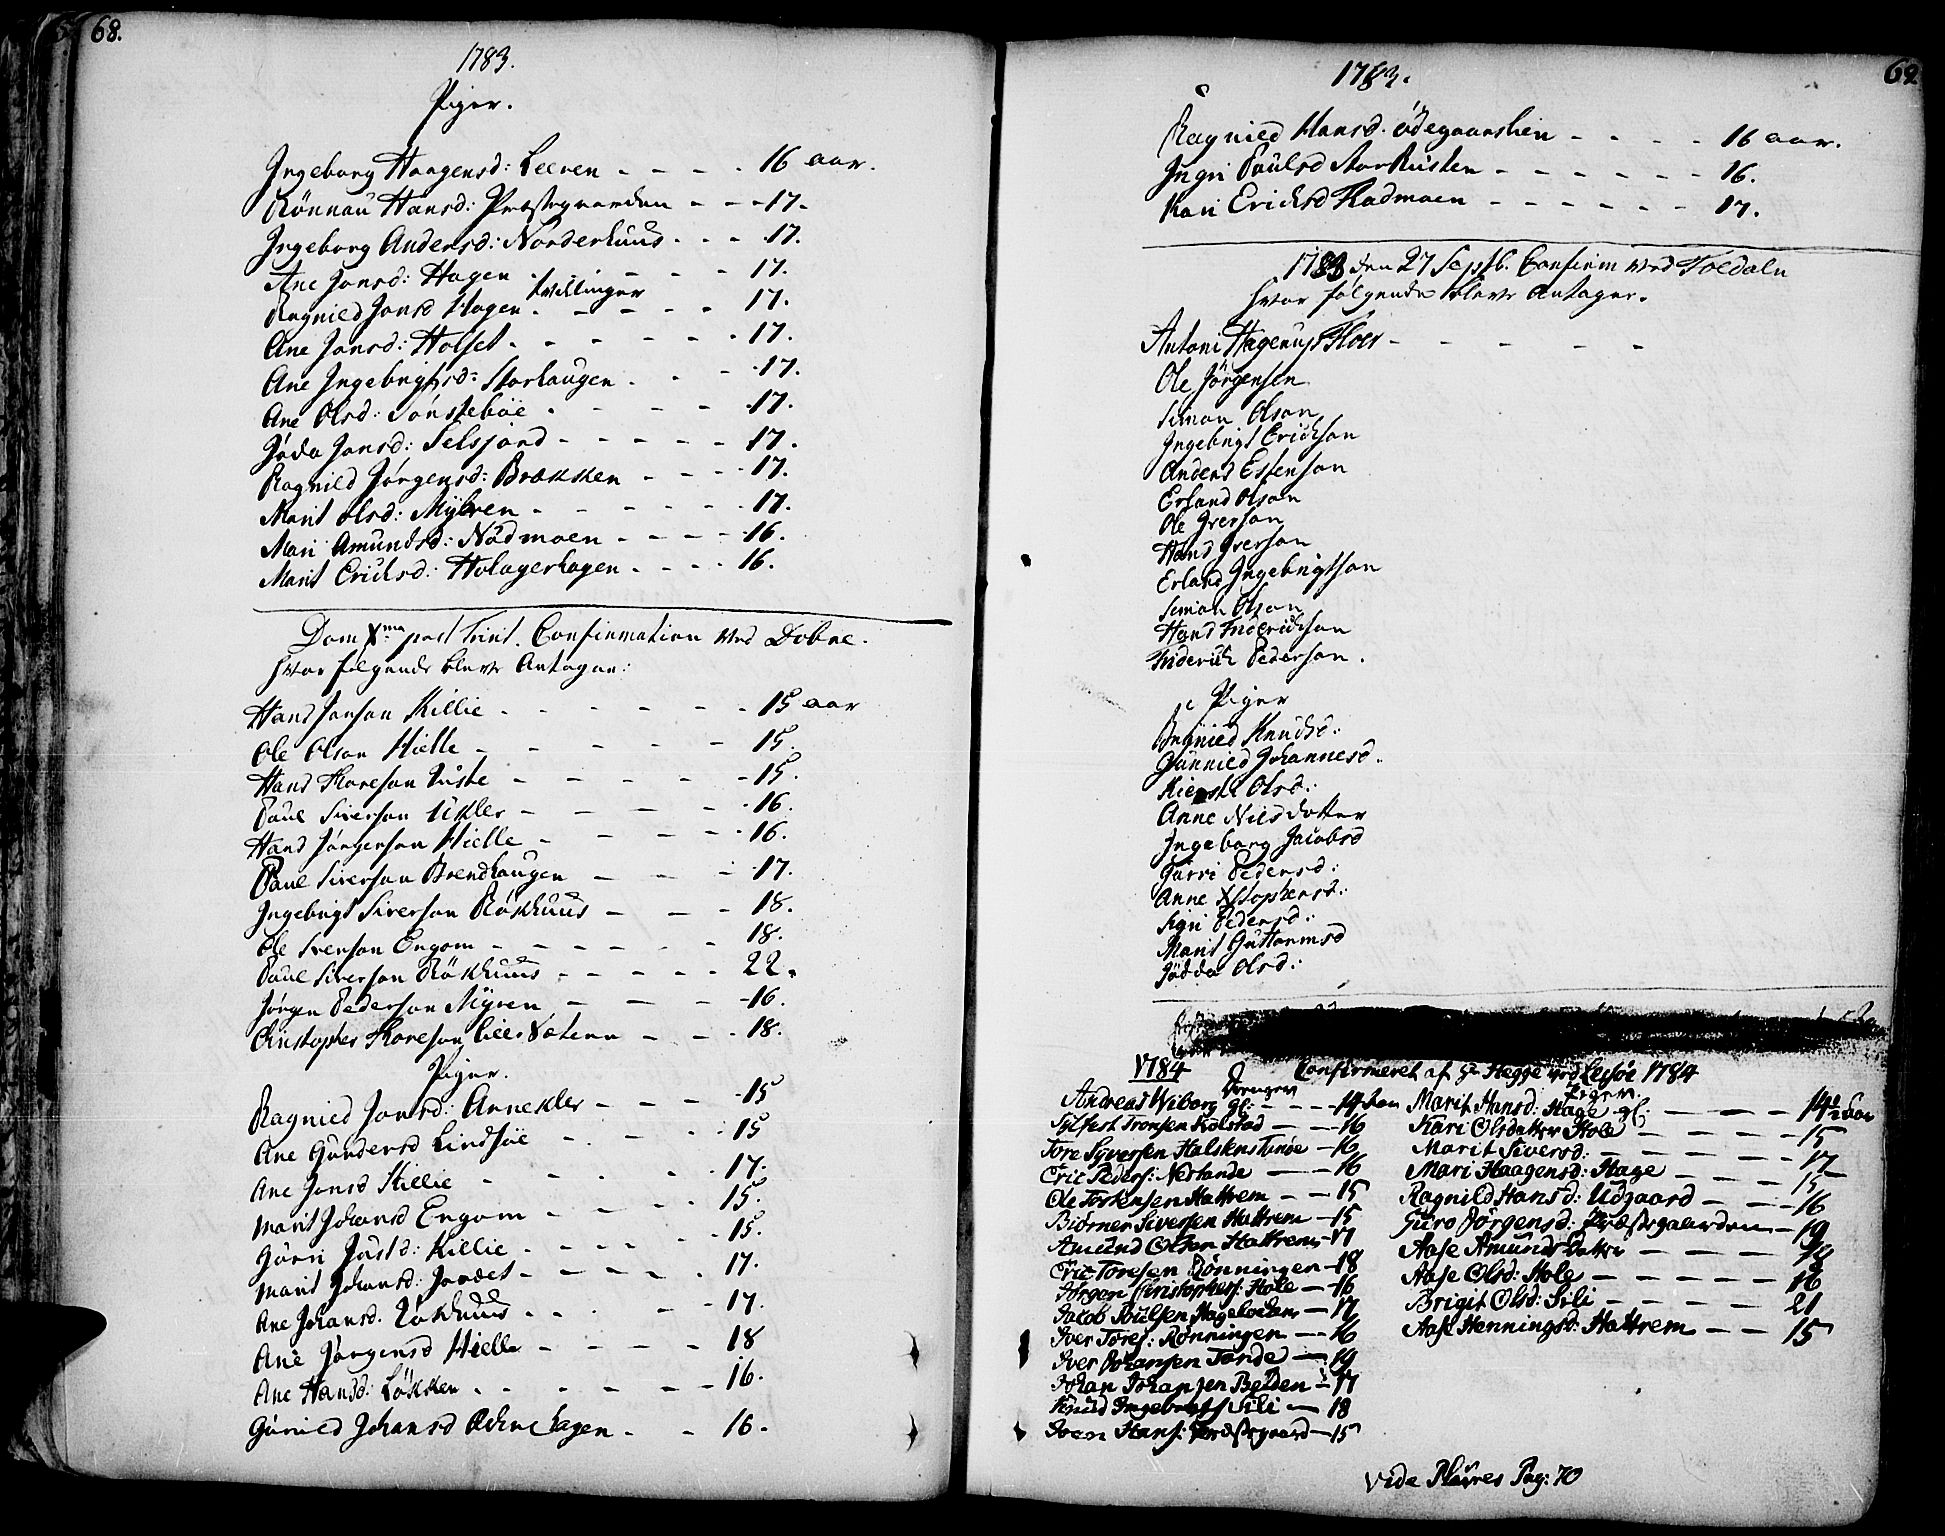 68.
1783.
Piger.
Ingeborg Haagensd: Leeren - - - - 16 aar.
Rönnau Hansd: Præstegaarden - - - 17.
Ingeborg Andersd: Norderhuus - - - 17.
Ane Jonsd: Hagen - - - 17.
tvillinger
Ragnild Jonsd Hagen - - - - 17.
Ane Jonsd: Holset - - - - - 17.
Ane Ingebrigtsd: Storhaugen - - - 17.
Ane Olsd: Tönsteböe - - - - 17.
Jøda Jonsd: Selsjord - - - - - 17.
Ragnild Jørgensd: Brækken - - - 17.
Marit Olsd: Myhren - - - - - 17.
Mari Amundsd: Nordmoen - - - - 16.
Marit Ericksd: Holagerhagen - - - - 16.
Dom X.ma post Trinit. Confirmation ved Dobre.
hvor følgende bleve Antagne:
Hans Jonson Killie - - - - - - 15 aar
Ole Olson Hielle - - - - - 15.
Hans Thoreson - - - - - 15.
Paul Siverson Ukler - - - - - 16.
Hans Jørgenson Hielle - - - - 16.
Paul Siverson Brendhaugen - - - 17.
Ingebrigt Siverson Løkhuus - - - 18.
Ole Iverson Engom - - - - - - 18.
Paul Siverson Løkhuus - - - - - 22.
Jørgen Pederson Myren - - - - 16.
Christopher Thoreson - - - 18.
Piger.
Ragnild Jonsd: Annekler - - - - 15
Ane Gundersd Lindsöe - - - - 15
Ane Jonsd Killie - - - - 17.
Marit Johansd Engom - - - - 15.
Gurri Justsd: Killie - - - - - - 15.
Marit Johansd: Jordet - - - - - 17.
Ane Johansd. Løkhuus - - - - - 17.
Ane Jörgensd Hielle - - - - - 18
Ane Hansd: Løkken - - - - - - 16.
Gunild Johansd - - 16.
69.
1783.
Ragnild Hansd. Ödegaardslien - - - - 16 aar.
Ingri Paulsd StorRusten - - - - - - 16.
Kari Ericksd Nordmoen - - - - - - 17.
1783 den 27 Septb. Confirm ved Foldaln
hvor følgende bleve Antagne.
Antoni Hagerup Floer - - - - - -
Ole Jörgensen
Simon Olson
Ingebrigt Erickson
Anders Estenson
Erland Olson
Ole Iverson
Hans Iverson
Erland Ingebrigtson
Simon Olson
Hans Friderichson
Friderich Pederson.
Piger
Ragnild Knudsd.
Gunnild Johannesd.
Kiersti Olsd:
Anne Nilsdotter
Ingeborg Jacobsd
Gurri Pedersd:
Anne Xstophersd:
Sigri Pedersd:
Marit Guttormsd
Jödda Olsd:
1784 Confirmeret af Hr Hegge ved Lessöe 1784
Drengene
Andreas Wiborg gl: - - - 14 Aar
Sylfest Tronsen Kolstad - - 16
Tore Syversen - 16
Eric Peders: Norlande - - 16
Ole Torstensen Hattrem - - 15
Biörner Siversen Hattrem - 15
Amund Olsen Hattrem - 17
Eric Toresen Rönningen - 18
Jörgen Christophers: Hole - 16
Jacob Poulsen - 17
Iver Tores: Rönningen - 16
Iver Johansen Tande - 19
Johan Johansen - 17
Knud Ingebrets Sili - 18
Hans: Præstegaard - 15
Pigen
Marit Hansd: Hage gl: - - - 14½ Aar
Kari Olsdatter Hole - - - - 15
Marit Siversd: - - - - - 17
Mari Haagensd: Hage - - - - 15
Ragnild Hansd: Udgaard - - 16
Guro Jörgensd: Præstegaarden - 19
Aase Amunds Datter - - - - 18
Aase Olsd: Hole - - - - - 16
Brigit Olsd: Sili - - - - - 21
Aase Henningsd: Hattrem - - - 15
Vide Plures Pag: 70